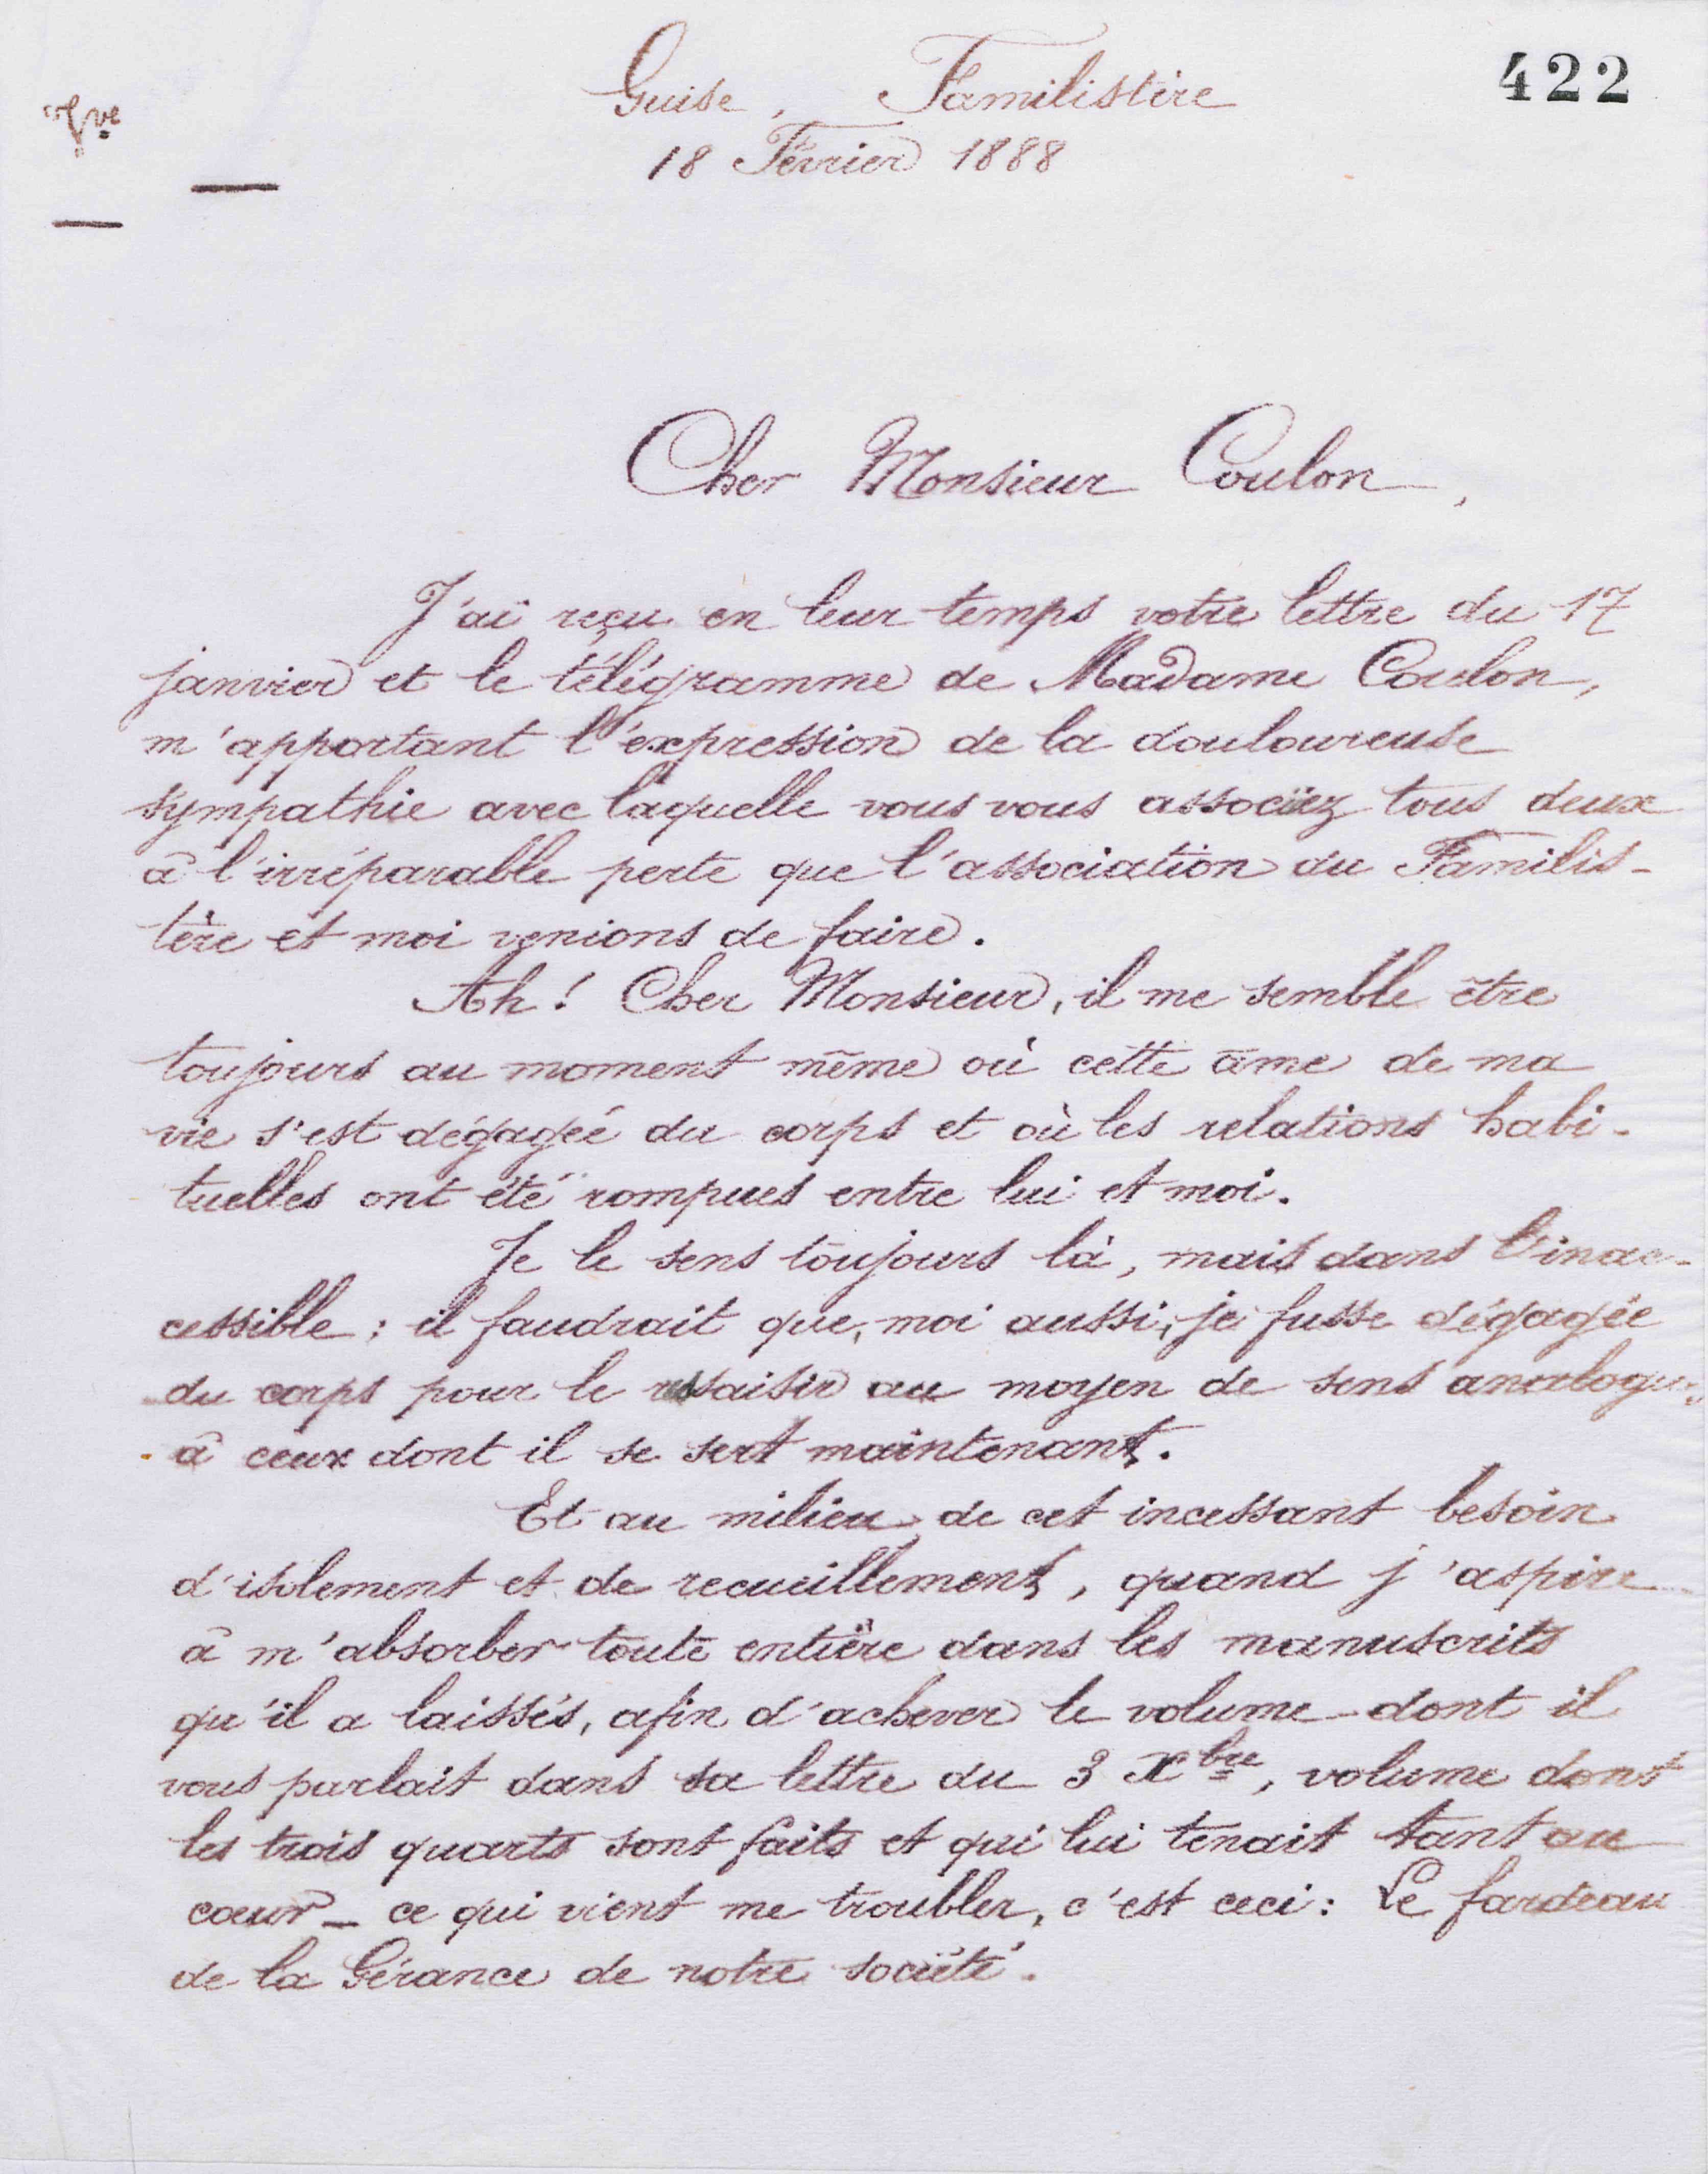 422
Guise, Familistère
18 Février 1888
Cher Monsieur Coulon,
J'ai reçu en leur temps votre lettre du 17
janvier et le télégramme de Madame Coulon,
m'apportant l'expression de la douloureuse
sympathie avec laquelle vous vous associez tous deux
à l'irréparable perte que l'association du Familis-
tère et moi venions de faire.
Ah! Cher Monsieur, il me semble être
toujours au moment même où cette âme de ma
vie s'est dégagée du corps et où les relations habi-
tuelles ont été rompues entre lui et moi.
Je le sens toujours là, mais dans l'inac-
cessible; il faudrait que, moi aussi, je fusse dégagée
du corps pour le ressaisir au moyen de sens analogues
à ceux dont il se sert maintenant.
Et au milieu de cet incessant besoin
d'isolement et de recueillement, quand j'aspire
à m'absorber toute entière dans les manuscrits
qu'il a laissés, afin d'achever le volume dont il
vous parlait dans sa lettre du 3 Xbre, volume dont
les trois quarts sont faits et qui lui tenait tant au
cœur - ce qui vient me troubler, c'est ceci: Le fardeau
de la Gérance de notre société.